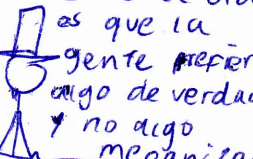 es que la
gente prefier
algo de verda
y no algo